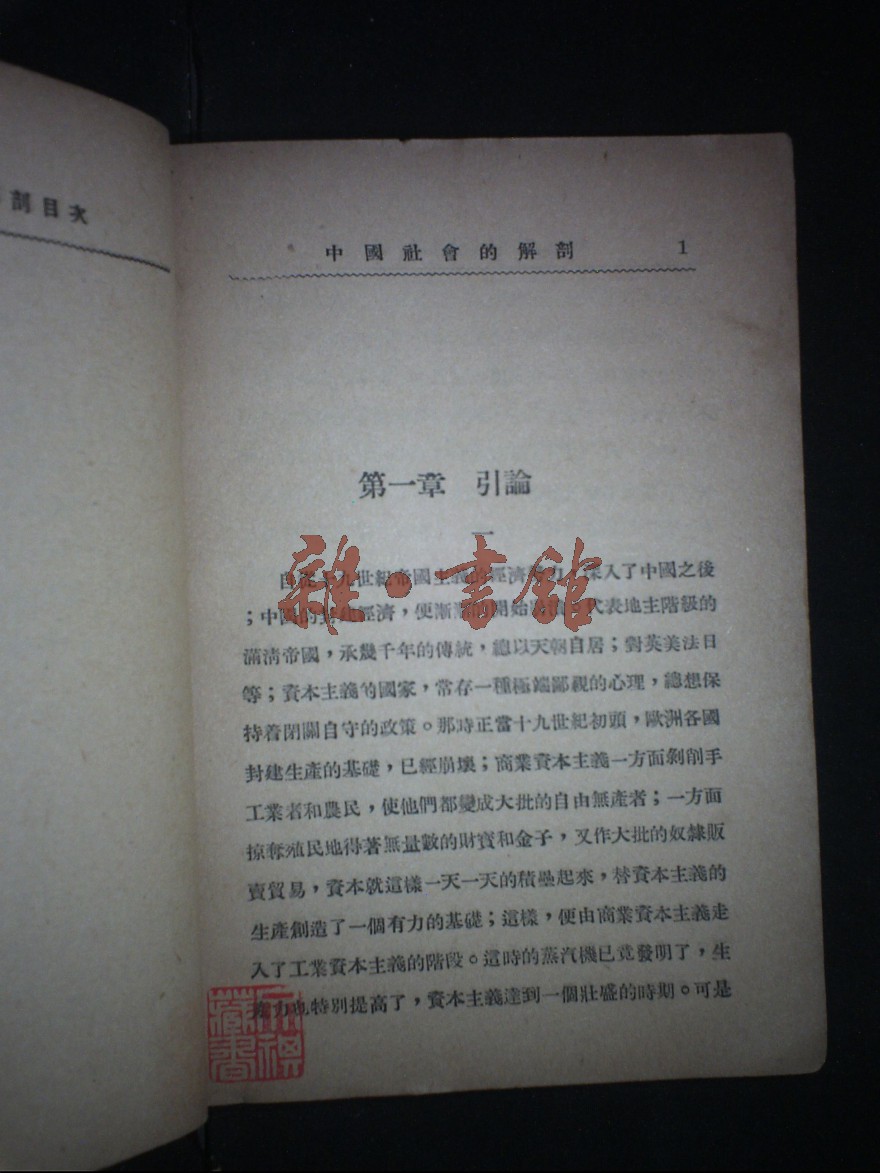 剖目次
中國社會的解剖 1
第一章 引論
一
自從十九世紀帝國主義的經濟勢力,深入了中國之後
;中國的封建經濟,便漸漸的開始崩潰。代表地主階級的
滿清帝國,承幾千年的傳統,總以天朝自居;對英美法日
等;資本主義的國家,常存一種極端鄙視的心理,總想保
持着閉關自守的政策。那時正當十九世紀初頭,歐洲各國
封建生產的基礎,已經崩壞;商業資本主義一方面剝削手
工業者和農民,使他們都變成大批的自由無產者;一方面
掠奪殖民地得著無量數的財寶和金子,又作大批的奴隸販
賣貿易,資本就這樣一天一天的積壘起來,替資本主義的
生產創造了一個有力的基礎;這樣,便由商業資本主義走
入了工業資本主義的階段。這時的蒸汽機已竟發明了,生
產力也特別提高了,資本主義達到一個壯盛的時期。可是
雜·書館
藏書